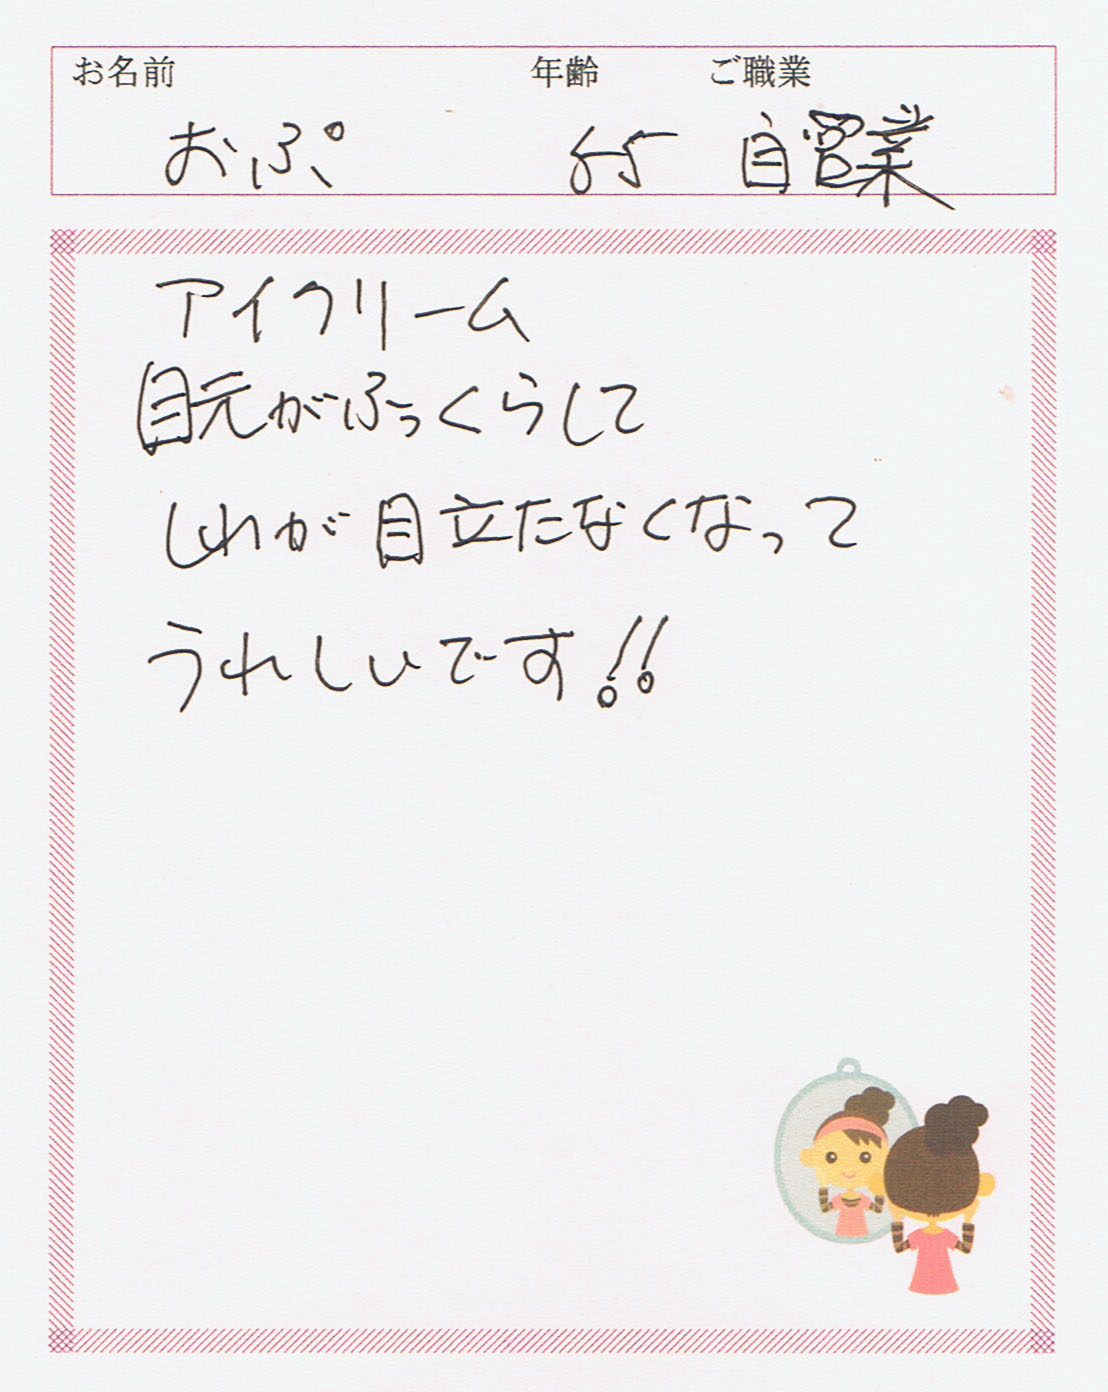 お名前 年齢 ご職業
おぷ 65 自営業
アイクリーム
目元がふっくらして
しわが目立たなくなって
うれしいです!!